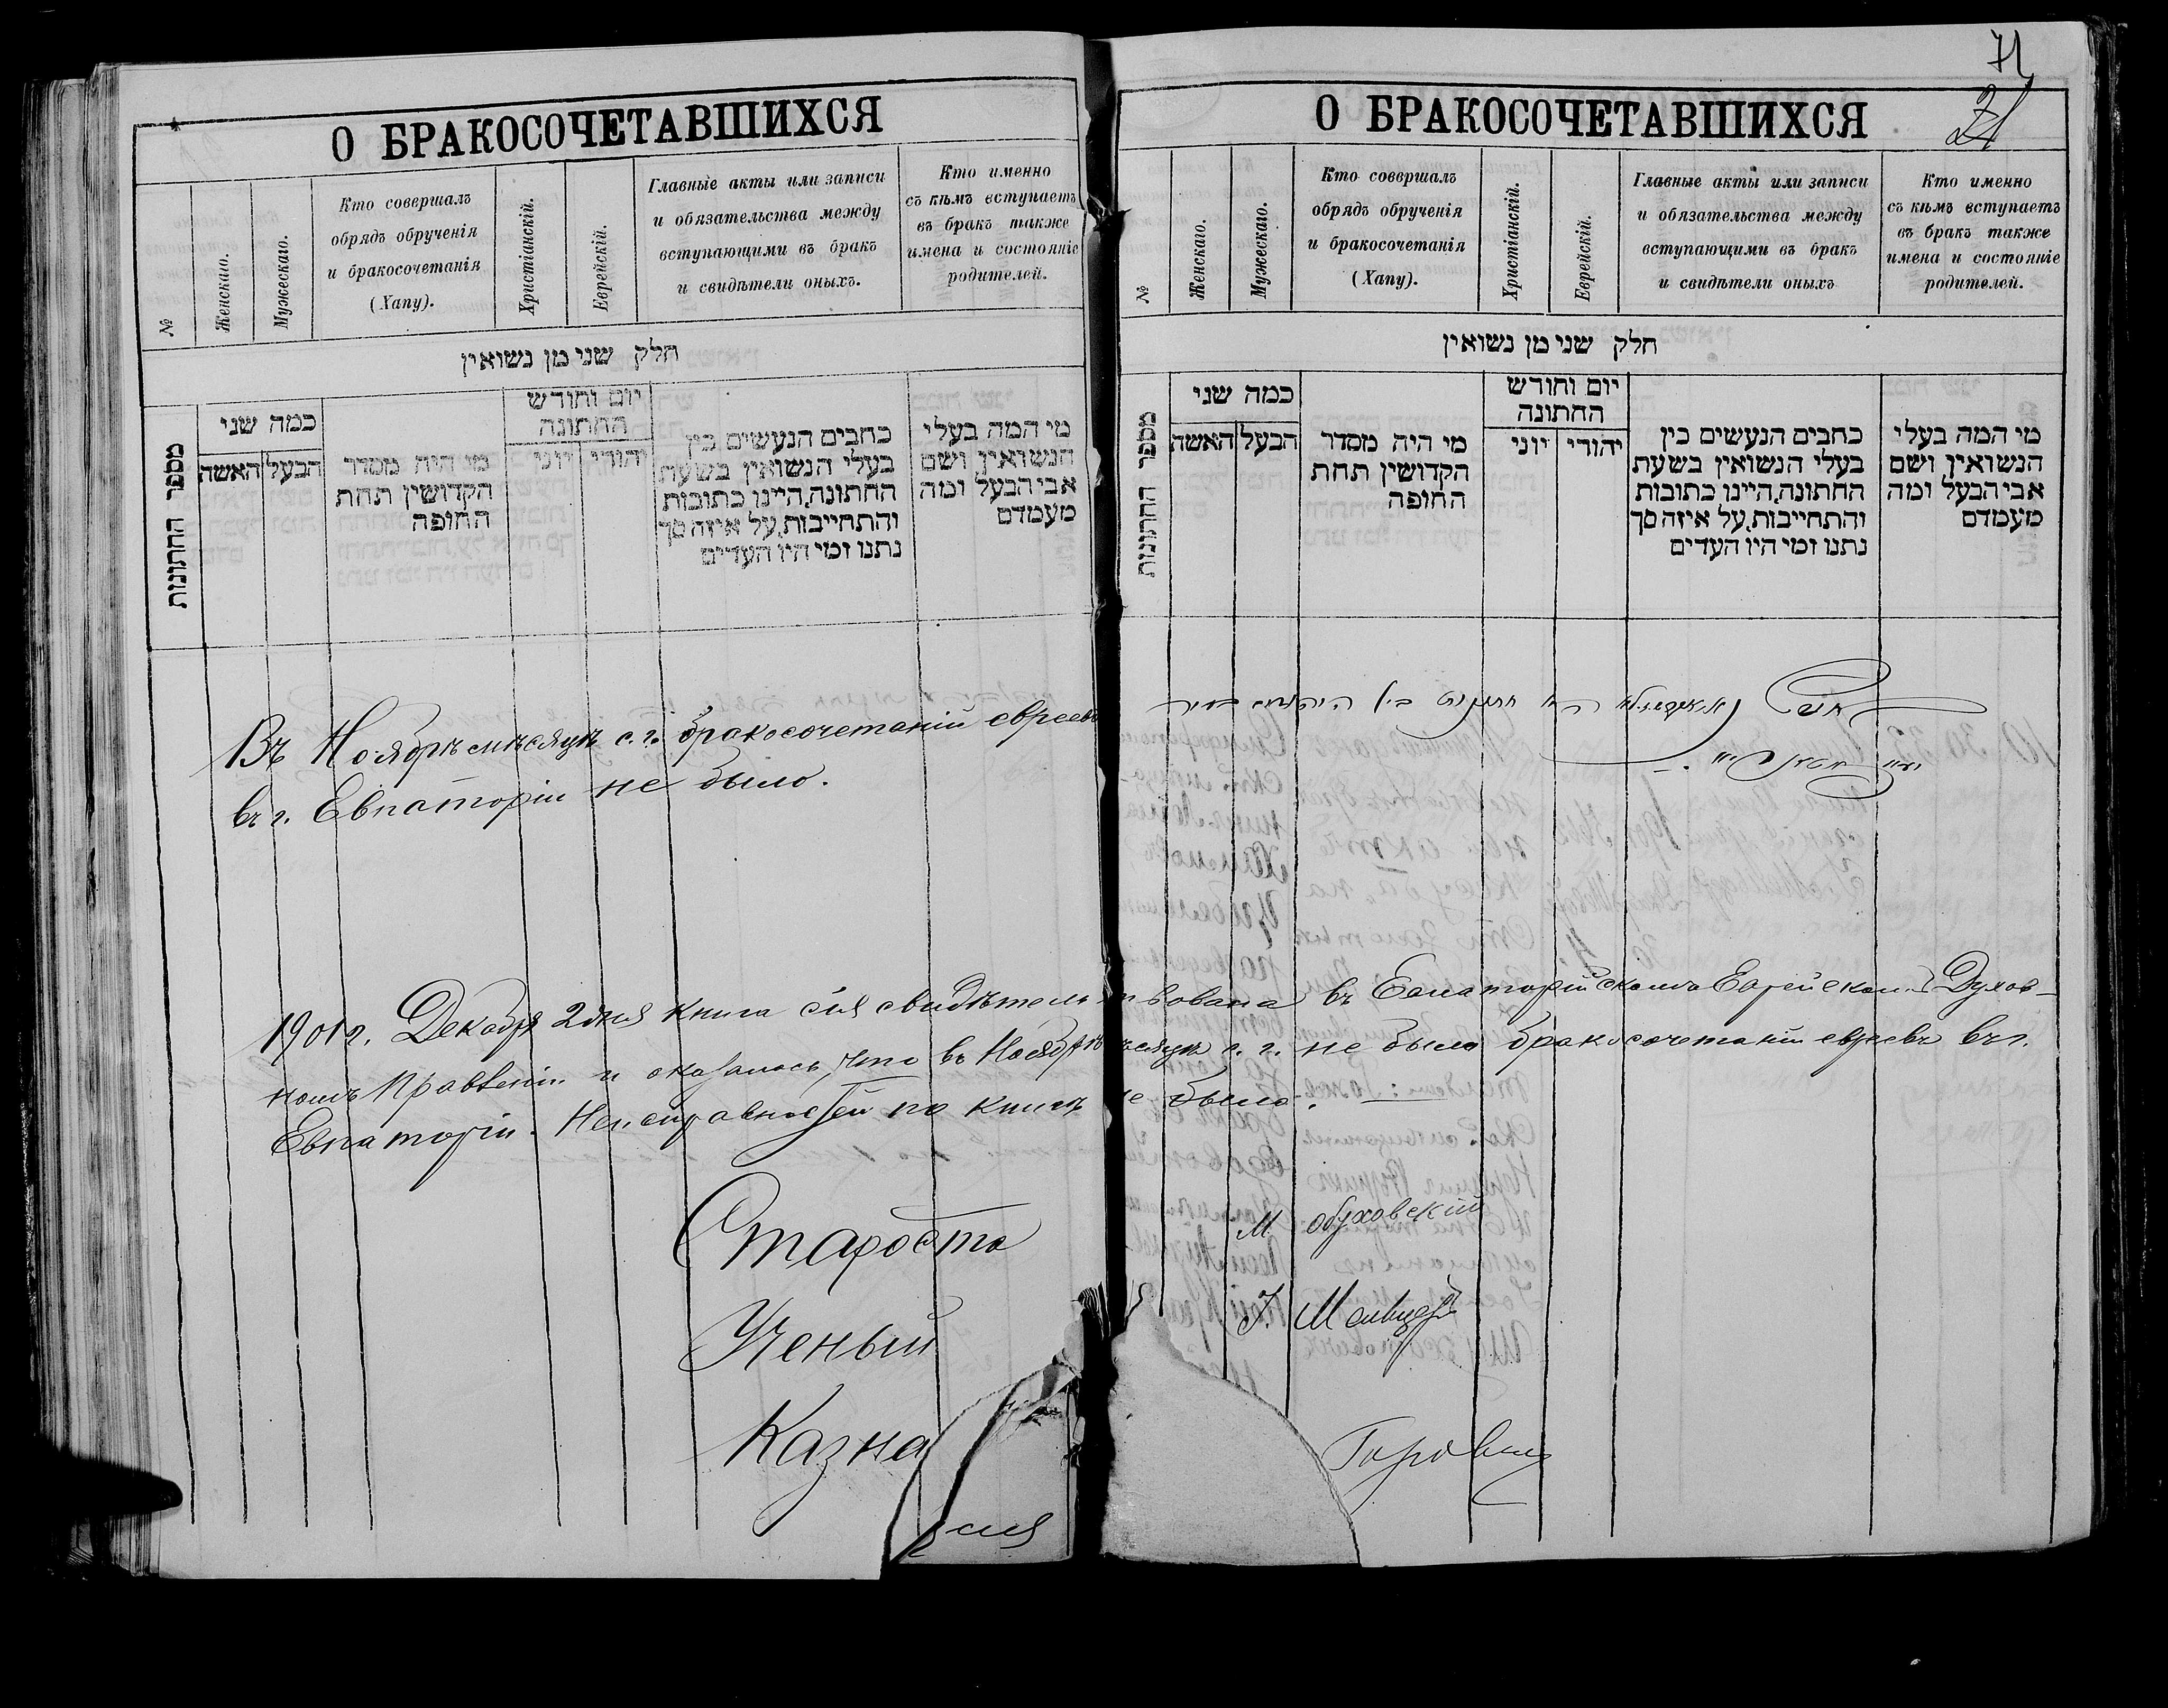 О БРАКОСОЧЕТАВШИХСЯ
№
Женскаго.
Мужескаго.
Кто совершалъ
обрядъ обрученія
и бракосочетанія
(Хапу).
Христіанскій.
Еврейскій.
Главные акты или записи
и обязательства между
вступающими въ бракъ
и свидѣтели оныхъ.
Кто именно
съ кѣмъ вступаетъ
въ бракъ также
имена и состояніе
родителей.
חלק שני מן נשואין
מספר החתונות
כמה שני
האשה
הבעל
מי היה מסדר
הקדושין תחת
החופה
יום וחודש
החתונה
יוני
יהודי
כתבים הנעשים בין
בעלי הנשואין בשעת
החתונה, היינו כתובות
והתחייבות, על איזה סך
נתנו ומי היו העדים
מי המה בעלי
הנשואין ושם
אבי הבעל ומה
מעמדם
Въ Ноябрѣ мѣсяцѣ с. г. бракосочетаній евреевъ
въ г. Евпаторіи не было.
71
21
О БРАКОСОЧЕТАВШИХСЯ
№
Женскаго.
Мужескаго.
Кто совершалъ
обрядъ обрученія
и бракосочетанія
(Хапу).
Христіанскій.
Еврейскій.
Главные акты или записи
и обязательства между
вступающими въ бракъ
и свидѣтели оныхъ
Кто именно
съ кѣмъ вступаетъ
въ бракъ также
имена и состояніе
родителей.
חלק שני מן נשואין
מספר החתונות
כמה שני
האשה
הבעל
מי היה מסדר
הקדושין תחת
החופה
יום וחודש
החתונה
יוני
יהודי
כתבים הנעשים בין
בעלי הנשואין בשעת
החתונה, היינו כתובות
והתחייבות, על איזה סך
נתנו ומי היו העדים
מי המה בעלי
הנשואין ושם
אבי הבעל ומה
מעמדם
1901 г. Декабря 2 дня книга сія свидѣтельствована въ Евпаторійскомъ Еврейскомъ Духов-
номъ Правленіи и оказалось, что въ Ноябрѣ мѣсяцѣ с. г. не было бракосочетаній евреевъ въ г.
Евпаторіи. Неисправностей по книгѣ не было.
Староста М Обуховскій
Ученый
Казна